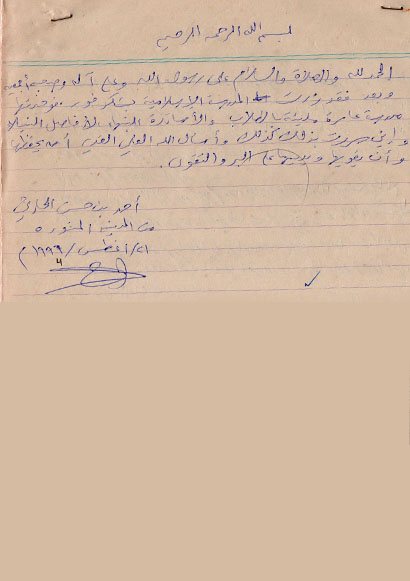 بسم الله الرحمن الرحيم
الحمد لله والصلاة والسلام على رسول الله وعلى آله وصحبه أجمعين
وبعد فقد زرت المدرسة الإسلامية بشكر فور فوجدتها
مدرسة عامرة مليئة بالطلاب والأساتذة النبهاء الأفاضل النبلاء
وإني سررت بذلك كذلك وأسأل الله العلي القدير أن يحفظها
وأن يقويها ويديمها على البر والتقوى.
أحمد بن حسن الحارثي
من المدينة المنورة
٢١/أغسطس/١٩٩٦م